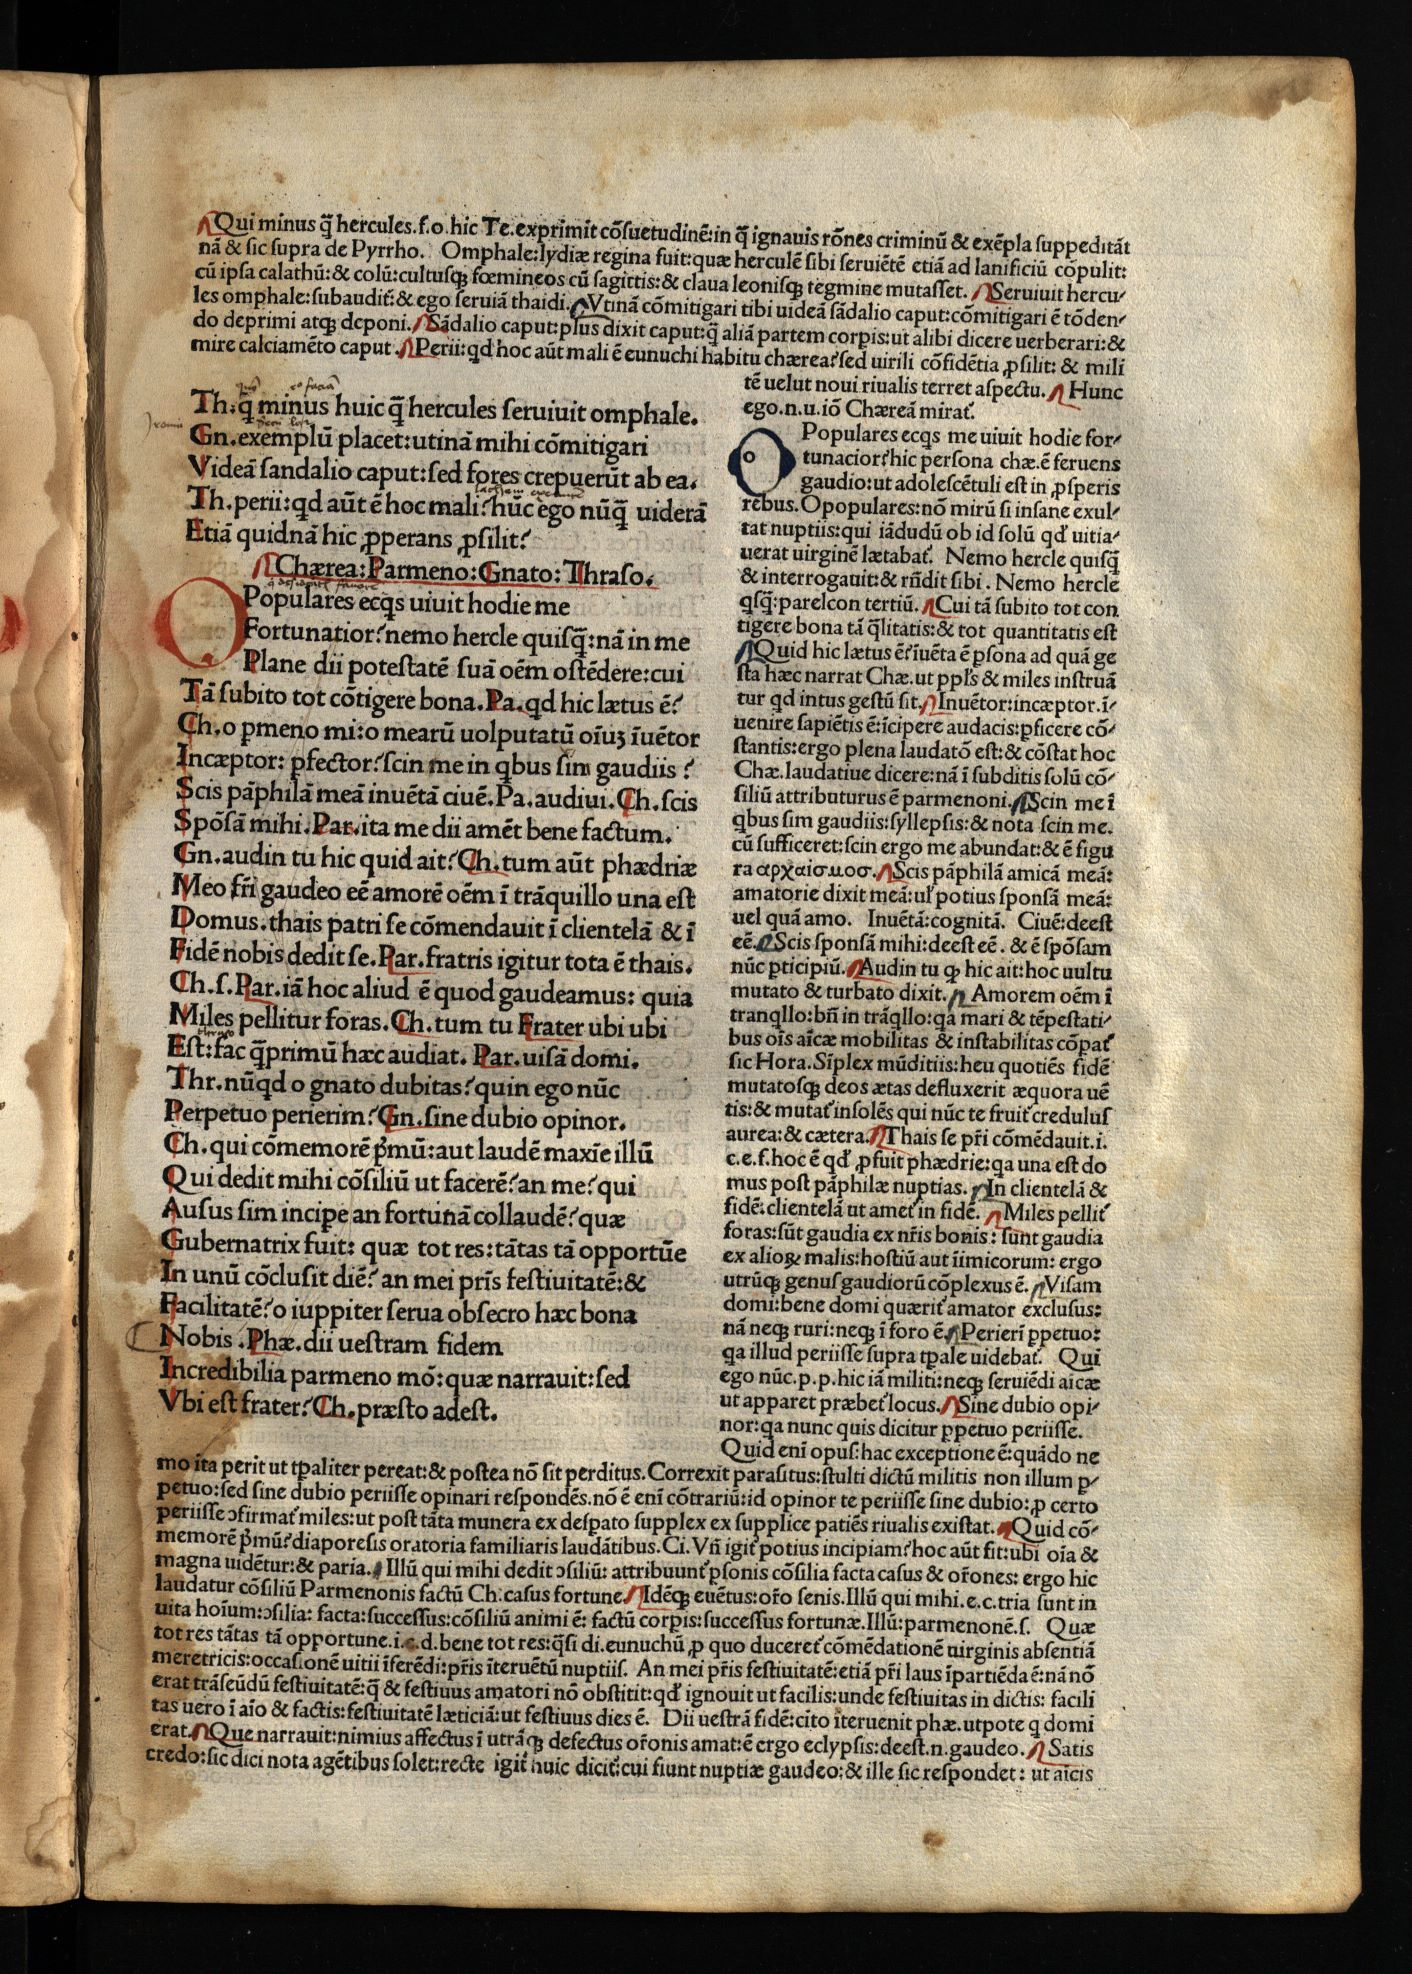 Qui minus q̃ hercules.f.o.hic Te.exprimit cõsuetudinẽ:in q̃ ignauis rõnes criminũ & exẽpla suppeditãt
nã & sic supra de Pyrrho. Omphale:lydiæ regina fuit:quæ herculẽ sibi seruiẽtẽ etiã ad lanificiũ cõpulit:
cũ ipsa calathũ:& colũ:cultusqꝫ fœmineos cũ sagittis:& claua leonisqꝫ tegmine mutasset. Seruiuit hercu⸗
les omphale:subaudit᷑:& ego seruiã thaidi. Vtinã cõmitigari tibi uideã sãdalio caput:cõmitigari ẽ tõden⸗
do deprimi atqꝫ deponi. Sãdalio caput:plus dixit caput:q̃ aliã partem corpis:ut alibi dicere uerberari:&
mire calciamẽto caput. Perii:qd hoc aũt mali ẽ eunuchi habitu chærea?sed uirili cõfidẽtia ꝓsilit: & mili
Th.q̃ minus huic q̃ hercules seruiuit omphale.
Gn.exemplũ placet:utinã mihi cõmitigari
Videã sandalio caput:sed fores crepuerũt ab ea.
Th.perii:qd aũt ẽ hoc mali?hũc ego nũq̃ uiderã
Etiã quidnã hic ꝓperans ꝓsilit?
Chærea:Parmeno:Gnato:Thraso.
O Populares ecqs uiuit hodie me
Fortunatior?nemo hercle quisq̃:nã in me
Plane dii potestatẽ suã oẽm ostẽdere:cui
Tã subito tot cõtigere bona.Pa.qd hic lætus ẽ?
Ch.o pmeno mi:o mearũ uolputatũ oĩuꝫ ĩuẽtor
Incæptor: pfector?scin me in qbus sim gaudiis?
Scis pãphilã meã inuẽtã ciuẽ.Pa.audiui.Ch.scis
Spõsã mihi.Par.ita me dii amẽt bene factum.
Gn.audin tu hic quid ait?Ch.tum aũt phædriæ
Meo fr̃i gaudeo eẽ amorẽ oẽm ĩ trãquillo una est
Domus.thais patri se cõmendauit ĩ clientelã & ĩ
Fidẽ nobis dedit se.Par.fratris igitur tota ẽ thais.
Ch.s.Par.iã hoc aliud ẽ quod gaudeamus: quia
Miles pellitur foras.Ch.tum tu Frater ubi ubi
Est:fac q̃primũ hæc audiat. Par.uisã domi.
Thr.nũqd o gnato dubitas?quin ego nũc
Perpetuo perierim?Gn.sine dubio opinor.
Ch.qui cõmemorẽ p̃mũ:aut laudẽ maxĩe illũ
Qui dedit mihi cõsiliũ ut facerẽ?an me?qui
Ausus sim incipe an fortunã collaudẽ?quæ
Gubernatrix fuit: quæ tot res:tãtas tã opportũe
In unũ cõclusit diẽ?an mei pr̃is festiuitatẽ:&
Facilitatẽ?o iuppiter serua obsecro hæc bona
Nobis.Phæ.dii uestram fidem
Incredibilia parmeno mõ:quæ narrauit:sed
Vbi est frater?Ch.præsto adest.
tẽ uelut noui riualis terret aspectu. Hunc
ego.n.u.iõ Chæreã mirat᷑.
O Populares ecqs me uiuit hodie for⸗
tunacior?hic persona chæ.ẽ feruens
gaudio:ut adolescẽtuli est in ꝓsperis
rebus.O populares:nõ mirũ si insane exul⸗
tat nuptiis:qui iãdudũ ob id solũ qđ uitia⸗
uerat uirginẽ lætabat᷑. Nemo hercle quisq̃
& interrogauit:& rñdit sibi. Nemo hercle
qsq̃:parelcon tertiũ. Cui tã subito tot con
tigere bona tã q̃litatis:& tot quantitatis est
Quid hic lætus ẽ?ĩuẽta ẽ psona ad quã ge
sta hæc narrat Chæ.ut ppl's & miles instruã
tur qd intus gestũ sit. Inuẽtor:incæptor.ĩ⸗
uenire sapiẽtis ẽ:ĩcipere audacis:pficere cõ⸗
stantis:ergo plena laudatõ est:& cõstat hoc
Chæ.laudatiue dicere:nã ĩ subditis solũ cõ⸗
siliũ attributurus ẽ parmenoni. Scin me ĩ
qbus sim gaudiis:syllepsis:& nota scin me.
cũ sufficeret:scin ergo me abundat:& ẽ figu
ra αρχαισμοσ. Scis pãphilã amicã meã:
amatorie dixit meã:ul' potius sponsã meã:
uel quã amo. Inuẽtã:cognitã. Ciuẽ:deest
eẽ. Scis sponsã mihi:deest eẽ. & ẽ spõsam
nũc pticipiũ. Audin tu qꝫ hic ait:hoc uultu
mutato & turbato dixit. Amorem oẽm ĩ
tranqllo:bñ in trãqllo:qa mari & tẽpestati⸗
bus oĩs aĩcæ mobilitas & instabilitas cõpat᷑
sic Hora.Sĩplex mũditiis:heu quotiẽs fidẽ
mutatosqꝫ deos ætas defluxerit æquora uẽ
tis:& mutat᷑ insolẽs qui nũc te fruit᷑ credulus
aurea:& cætera. Thais se pr̃i cõmẽdauit.i.
c.e.f.hoc ẽ qđ ꝓfuit phædrie:qa una est do
mus post pãphilæ nuptias. In clientelã &
fidẽ:clientelã ut amet᷑ in fidẽ. Miles pellit᷑
foras:sũt gaudia ex nr̃is bonis: sunt gaudia
ex alioꝝ malis:hostiũ aut ĩimicorum: ergo
utrũqꝫ genus gaudiorũ cõplexus ẽ. Visam
domi:bene domi quærit᷑ amator exclusus:
nã neqꝫ ruri:neqꝫ ĩ foro ẽ. Perierĩ ppetuo:
qa illud periisse supra tpale uidebat᷑. Qui
ego nũc.p.p.hic iã militi:neqꝫ seruiẽdi aĩcæ
ut apparet præbet᷑ locus. Sine dubio opi⸗
nor:qa nunc quis dicitur ppetuo periisse.
Quid enĩ opus:hac exceptione ẽ:quãdo ne
mo ita perit ut tpaliter pereat:& postea nõ sit perditus.Correxit parasitus:stulti dictũ militis non illum p⸗
petuo:sed sine dubio periisse opinari respondẽs.nõ ẽ enĩ cõtrariũ:id opinor te periisse sine dubio:ꝓ certo
periisse ɔfirmat᷑ miles:ut post tãta munera ex despato supplex ex supplice patiẽs riualis existat. Quid cõ⸗
memorẽ p̃mũ?diaporesis oratoria familiaris laudãtibus.Ci.Vñ igit᷑ potius incipiam?hoc aũt fit:ubi oĩa &
magna uidẽtur:& paria. Illũ qui mihi dedit ɔsiliũ: attribuunt᷑ psonis cõsilia facta casus & or̃ones: ergo hic
laudatur cõsiliũ Parmenonis factũ Ch.casus fortune. Idẽqꝫ euẽtus:or̃o senis.Illũ qui mihi.e.c.tria sunt in
uita hoĩum:ɔsilia: facta:successus:cõsiliũ animi ẽ: factũ corpis:successus fortunæ.Illũ:parmenonẽ.s. Quæ
tot res tãtas tã opportune.i.c.d.bene tot res:q̃si di.eunuchũ ꝓ quo duceret᷑ cõmẽdationẽ uirginis absentiã
meretricis:occasionẽ uitii ĩferẽdi:pr̃is ĩteruẽtũ nuptiis. An mei pr̃is festiuitatẽ:etiã pr̃i laus ĩpartiẽda ẽ:nã nõ
erat trãseũdũ festiuitatẽ:q̃ & festiuus amatori nõ obstitit:qđ ignouit ut facilis:unde festiuitas in dictis: facili
tas uero ĩ aĩo & factis:festiuitatẽ læticiã:ut festiuus dies ẽ. Dii uestrã fidẽ:cito ĩteruenit phæ.utpote q domi
erat. Que narrauit:nimius affectus ĩ utrãqꝫ defectus or̃onis amat:ẽ ergo eclypsis:deest.n.gaudeo. Satis
credo:sic dici nota agẽtibus solet:recte igit᷑ huic dicit᷑:cui fiunt nuptiæ gaudeo:& ille sic respondet: ut aĩcis